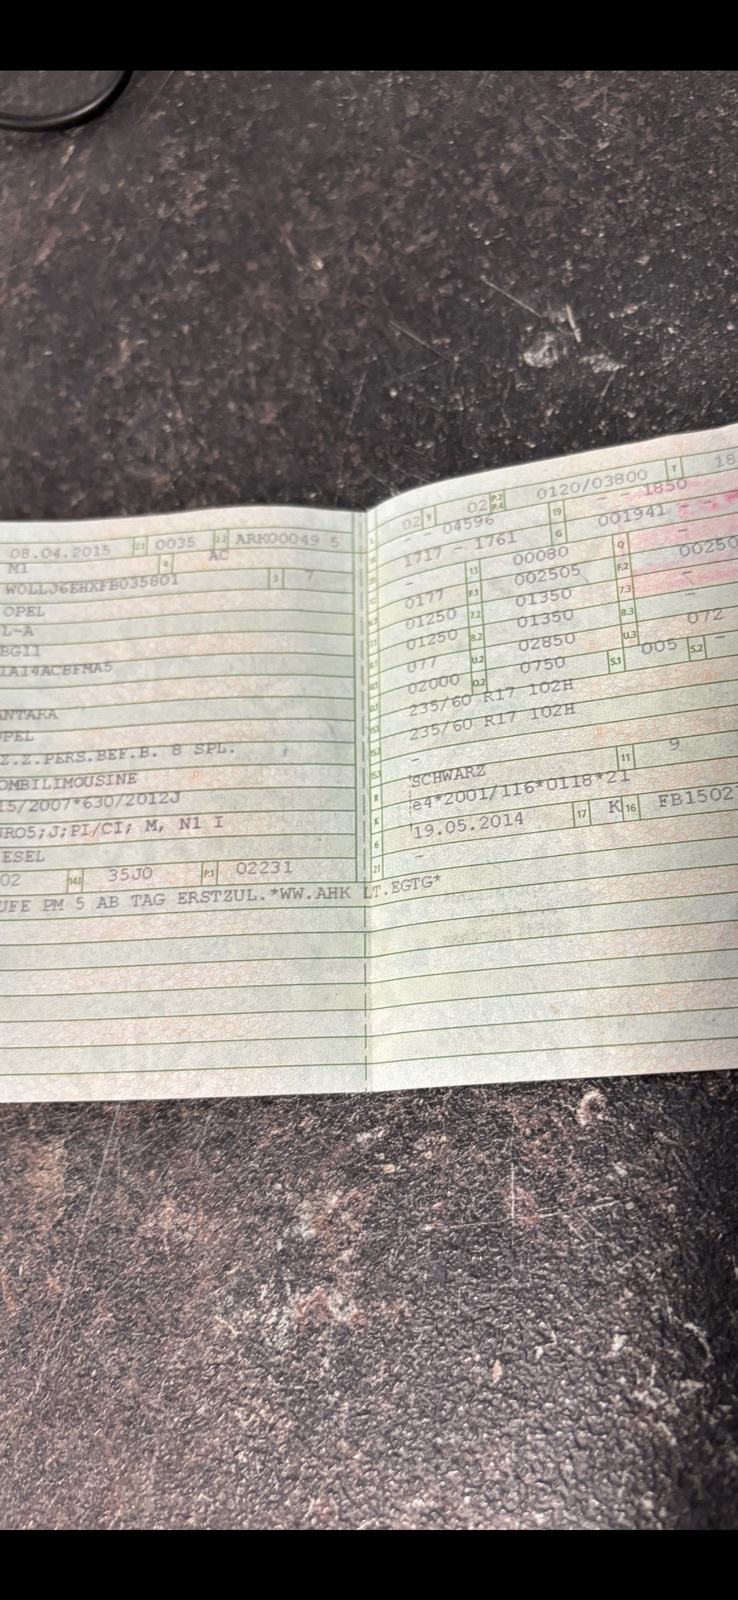 08.04.2015 2.1 0035 2.2 ARK00049 5
M1 4 AC
W0LLJ6EHXFB035801 3 7
OPEL
L-A
BG11
1A14ACBFMA5
NTARA
PEL
Z.Z.PERS.BEF.B. 8 SPL.
OMBILIMOUSINE
15/2007*630/2012J
URO5;J;PI/CI; M, N1 I
ESEL
02 14.1 35J0 P.1 02231
UFE PM 5 AB TAG ERSTZUL.*WW.AHK LT.EGTG*
02 9 02 P.2 P.4 0120/03800 T 18
- - 04596 19 - - 1850
1717 - 1761 G 001941 - -
- 13 00080 Q -
0177 F.1 002505 F.2 00250
01250 7.2 01350 7.3 -
01250 8.2 01350 8.3 -
077 U.2 02850 U.3 072
02000 O.2 0750 S.1 005 S.2 -
235/60 R17 102H
235/60 R17 102H
-
SCHWARZ 11 9
e4*2001/116*0118*21
19.05.2014 17 K 16 FB1502
21 -